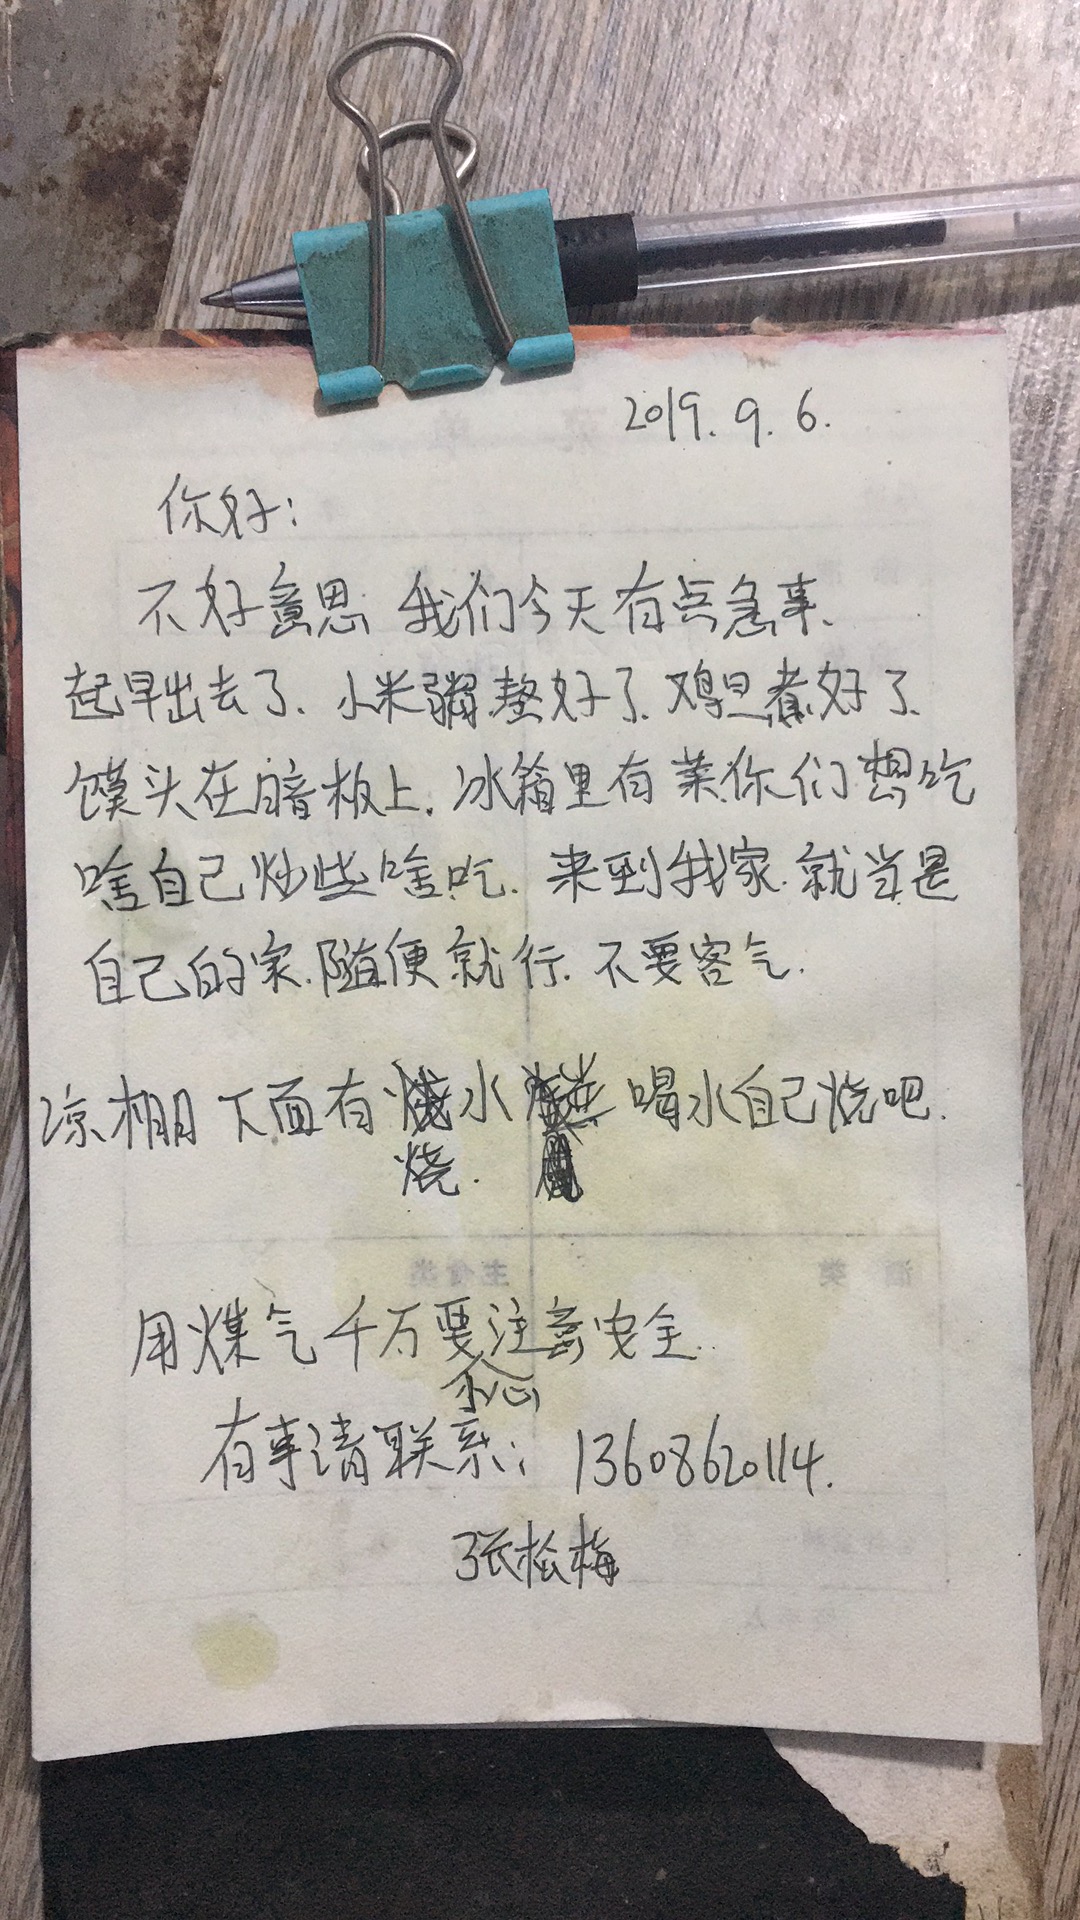 2019.9.6.
你好:
不好意思 我们今天有点急事、
起早出去了、小米粥整好了、鸡旦煮好了、
馍头在暗板上.冰箱里有菜你们想吃
啥自己炒些啥吃.来到我家.就当是
自己的家.随便就行.不要客气.
凉棚下面有 水 喝水自己烧吧.
烧.
用煤气千万要注意安全.
有事请联系: 13608620114.
张松梅
主食类
酒 类